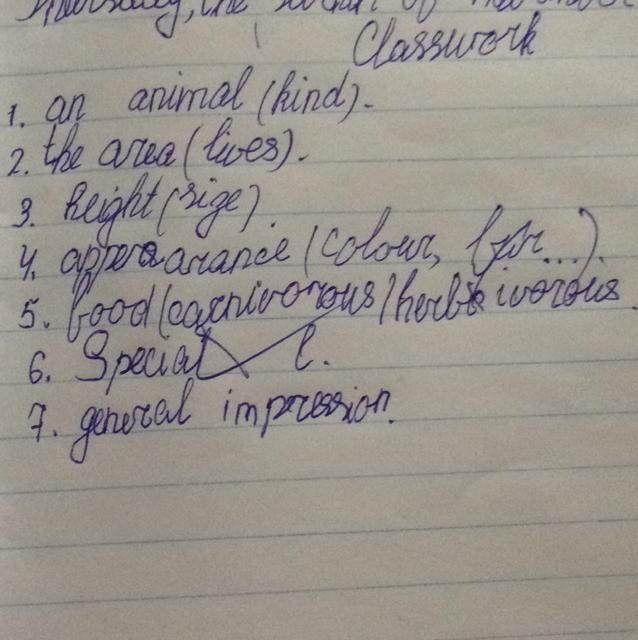 Thursday, the
Classwork
1. an animal (kind).
2. the area (lives).
3. height (size)
4. appearance (colour, fur...).
5. food (carnivorous / herbivorous.
6. Special
7. general impression.